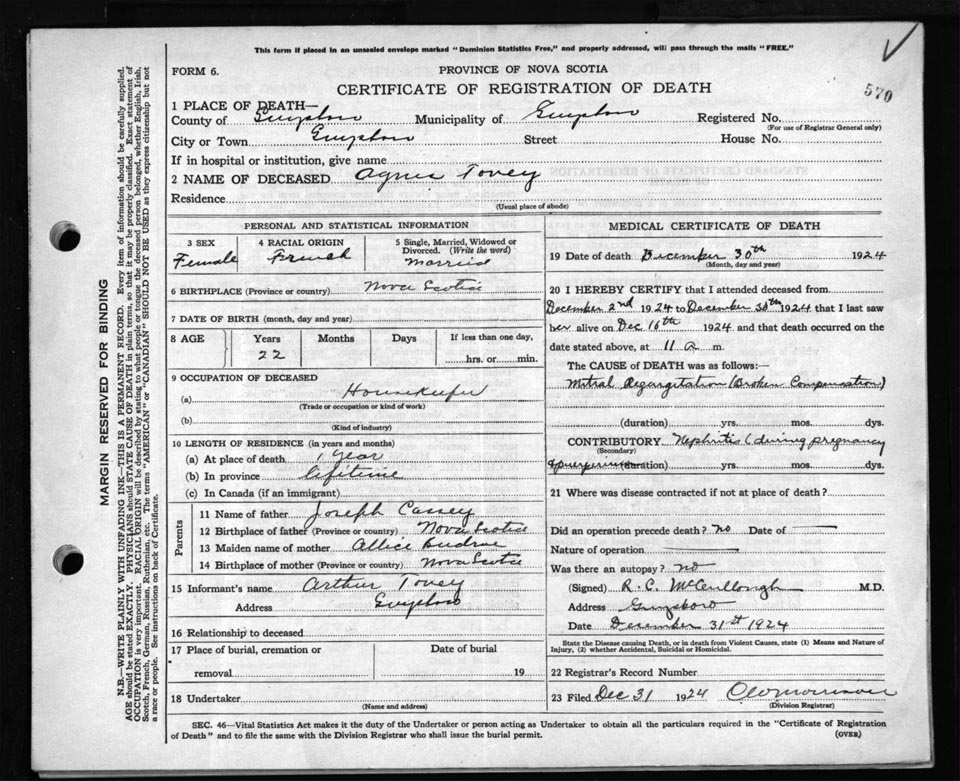 This form if placed in an unsealed envelope marked "Dominion Statistics Free," and properly addressed, will pass through the mails "FREE."
570
FORM 6. PROVINCE OF NOVA SCOTIA
CERTIFICATE OF REGISTRATION OF DEATH
1 PLACE OF DEATH—
County of Guysboro Municipality of Guysboro Registered No.
(For use of Registrar General only)
City or Town Guysboro Street House No.
If in hospital or institution, give name
2 NAME OF DECEASED Agnes Tovey
Residence
(Usual place of abode)
PERSONAL AND STATISTICAL INFORMATION
3 SEX 4 RACIAL ORIGIN 5 Single, Married, Widowed or Divorced. (Write the word)
Female French Married
6 BIRTHPLACE (Province or country) Nova Scotia
7 DATE OF BIRTH (month, day and year)
8 AGE Years Months Days If less than one day,
22 hrs. or min.
9 OCCUPATION OF DECEASED
(a) Housekeeper
(Trade or occupation or kind of work)
(b)
(Kind of industry)
10 LENGTH OF RESIDENCE (in years and months)
(a) At place of death 1 year
(b) In province lifetime
(c) In Canada (if an immigrant)
Parents
11 Name of father Joseph Cassey
12 Birthplace of father (Province or country) Nova Scotia
13 Maiden name of mother Allice
14 Birthplace of mother (Province or country) Nova Scotia
15 Informant's name Arthur Tovey
Address Guysboro
16 Relationship to deceased
17 Place of burial, cremation or removal Date of burial
19
18 Undertaker
(Name and address)
MEDICAL CERTIFICATE OF DEATH
19 Date of death December 30th 1924
(Month, day and year)
20 I HEREBY CERTIFY that I attended deceased from
December 2nd 1924 to December 30th 1924 that I last saw
her alive on Dec 16th 1924 and that death occurred on
date stated above, at 11 a m.
The CAUSE of DEATH was as follows:—
Mitral Regurgitation (Broken Compensation)
(duration) yrs. mos. dys.
CONTRIBUTORY Nephritis (during pregnancy
(Secondary)
(duration) yrs. mos. dys.
21 Where was disease contracted if not at place of death?
Did an operation precede death? no Date of
Nature of operation
Was there an autopsy? no
(Signed) R. C. McCullough M.D.
Address Guysboro
Date December 31st 1924
State the Disease causing Death, or in death from Violent Causes, state (1) Means and Nature of
Injury, (2) whether Accidental, Suicidal or Homicidal.
22 Registrar's Record Number
23 Filed Dec 31 1924
(Division Registrar)
SEC. 46—Vital Statistics Act makes it the duty of the Undertaker or person acting as Undertaker to obtain all the particulars required in the "Certificate of Registration
of Death" and to file the same with the Division Registrar who shall issue the burial permit. (OVER)
MARGIN RESERVED FOR BINDING
N.B.—WRITE PLAINLY WITH UNFADING INK—THIS IS A PERMANENT RECORD. Every item of information should be carefully supplied.
AGE should be stated EXACTLY. PHYSICIANS should STATE CAUSE OF DEATH in plain terms, so that it may be properly classified. Exact statement of
OCCUPATION is very important. RACIAL ORIGIN will be described by stating to what people or tongue the deceased person belonged, whether English, Irish,
Scotch, French, German, Russian, Ruthenian, etc. The terms "AMERICAN" or "CANADIAN" SHOULD NOT BE USED as they express citizenship but not
a race or people. See instructions on back of Certificate.